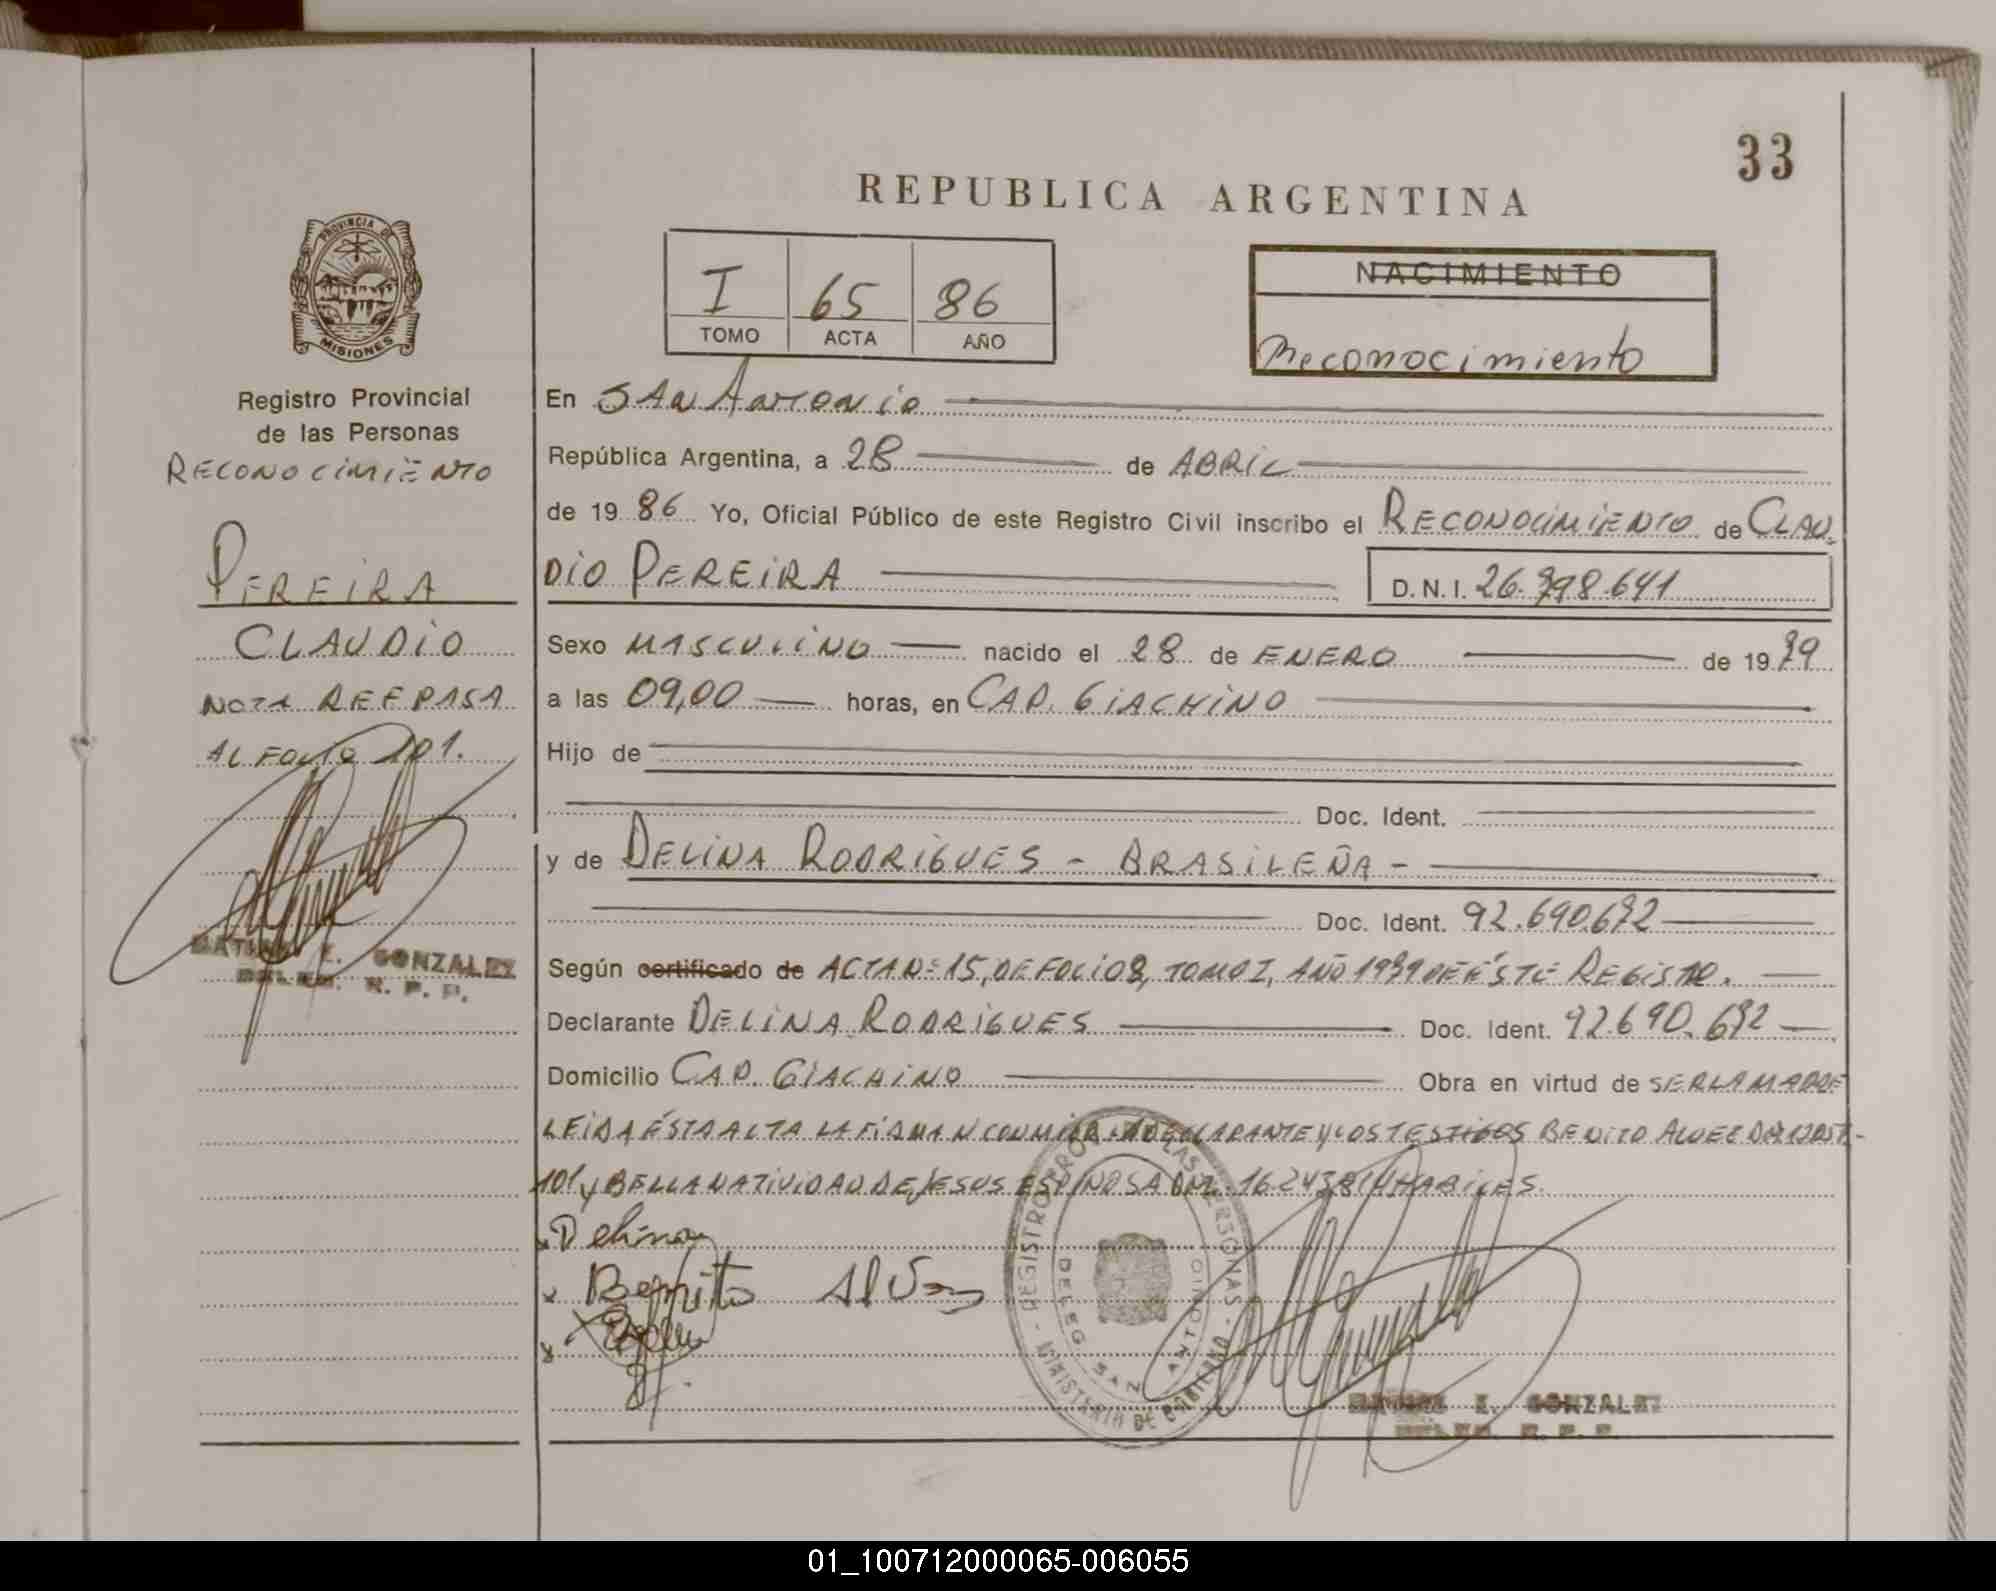 33
REPUBLICA ARGENTINA
PROVINCIA DE
MISIONES
I 65 86
TOMO ACTA AÑO
NACIMIENTO
Reconocimiento
Registro Provincial
de las Personas
RECONOCIMIENTO
PEREIRA
CLAUDIO
NOTA REF PASA
AL FOLIO 101.
E. GONZALEZ
DELEG. R. P. P.
En SAN ANTONIO
República Argentina, a 28 de ABRIL
de 19 86 Yo, Oficial Público de este Registro Civil inscribo el RECONOCIMIENTO de CLAU
DIO PEREIRA D.N.I. 26.798.641
Sexo MASCULINO nacido el 28 de ENERO de 19 79
a las 09,00 horas, en CAP. GIACHINO
Hijo de
Doc. Ident.
y de DELINA RODRIGUES - BRASILEÑA -
Doc. Ident. 92.690.672
Según certificado de ACTA Nº 15, DE FOLIO 8, TOMO I, AÑO 1979 DE ÉSTE REGISTRO.
Declarante DELINA RODRIGUES Doc. Ident. 92.690.672
Domicilio CAP. GIACHINO Obra en virtud de SER LA MADRE
LEIDA ÉSTA ACTA LA FIRMAN CONMIGO DECLARANTE Y LOS TESTIGOS BENITO ALVEZ
101 y BELLA NATIVIDAD DE JESUS ESPINOSA HABILES.
Delina
Benito Alvez
REGISTRO PROV. DE LAS PERSONAS - MINISTERIO DE GOBIERNO -
DELEG. SAN ANTONIO
E. GONZALEZ
DELEG. R. P. P.
01_100712000065-006055